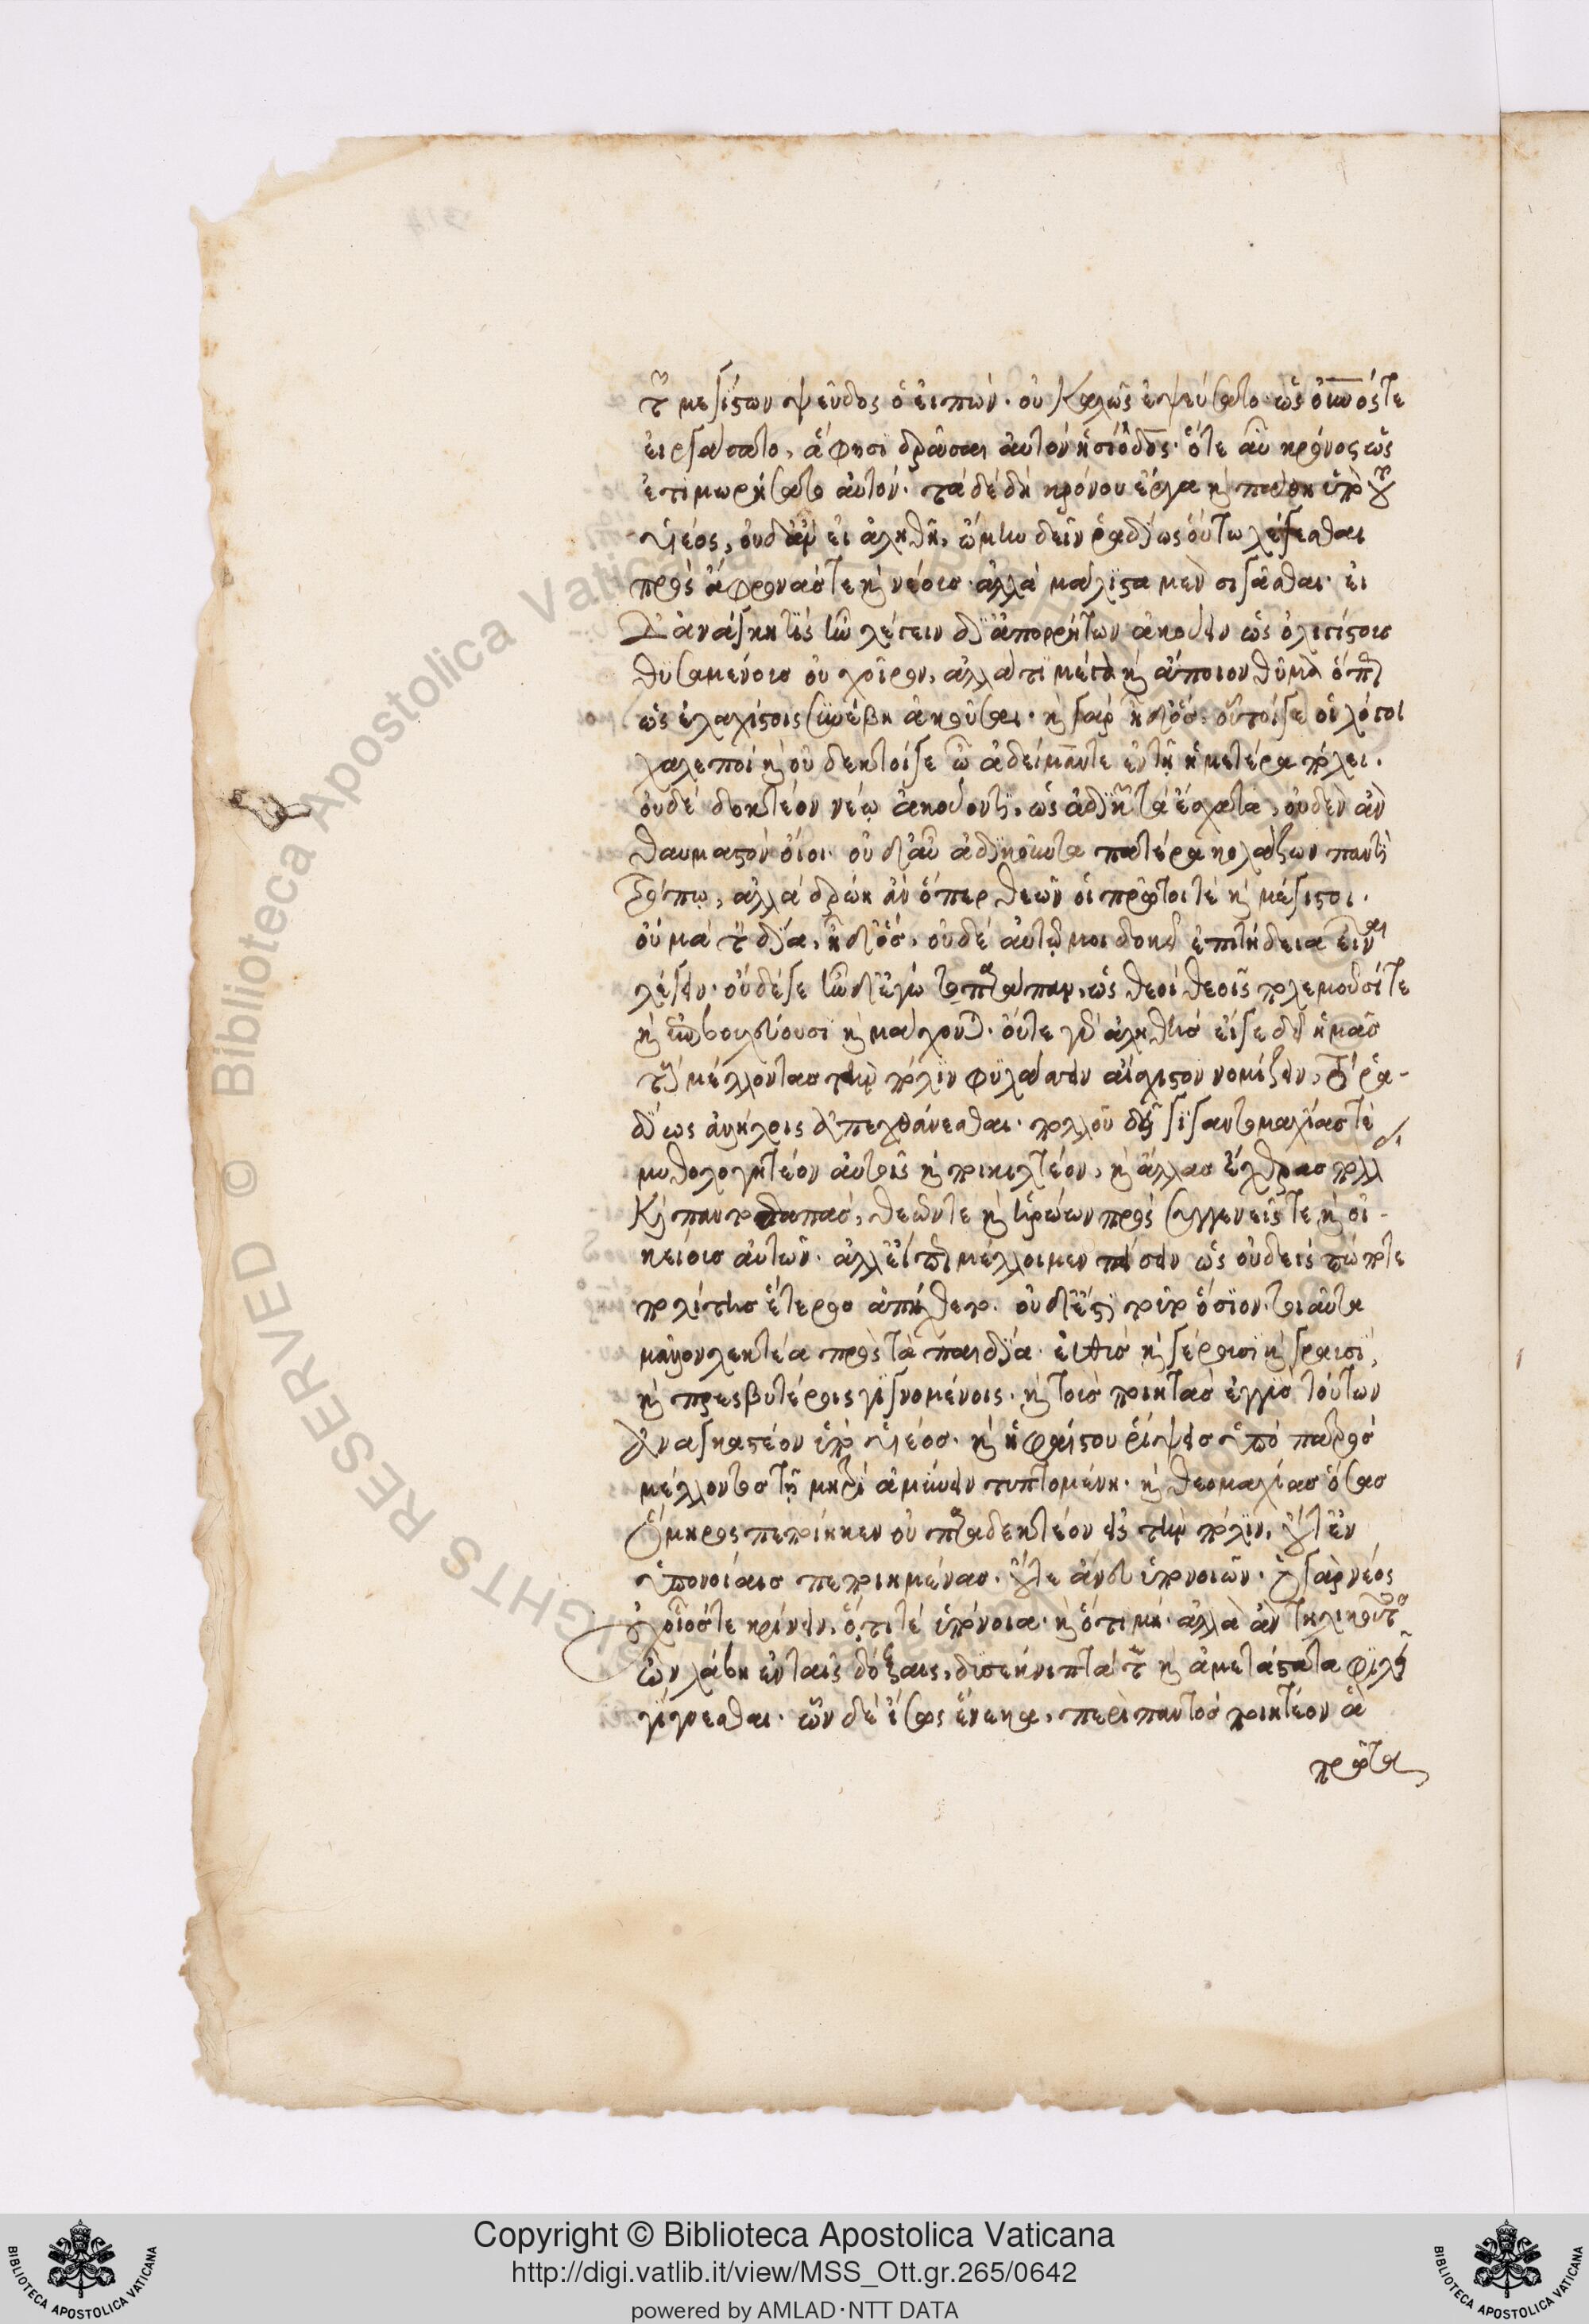 τῶν μεγίστων ψεῦδος ὁ εἰπὼν. οὐ καλῶς ἐψεύσατο. ὡς οὐρανός τε
εἰργάσατο, ἅ φησι δρᾶσαι αὐτὸν ἡσίοδος. ὅτε αὖ κρόνος ὡς
ἐτιμωρήσατο αὐτόν. τὰ δὲ δὴ κρόνου ἔργα καὶ πάθη ὑπὸ τοῦ
υἱέος, οὐδ' ἂν εἰ ἀληθῆ, ᾤμην δεῖν ῥαδίως οὕτω λέγεσθαι
πρὸς ἄφρονάς τε καὶ νέους. ἀλλὰ μάλιστα μὲν σιγᾶσθαι. εἰ
δ' ἀνάγκη τις ἦν λέγειν δι' ἀπορρήτων ἀκούειν ὡς ὀλιγίστους
θυσαμένους οὐ χοῖρον, ἀλλά τι μέγα καὶ ἄποιον θῦμα ὅπως
ὡς ἐλαχίστοις συνέβη ἀκοῦσαι. καὶ γὰρ ἦ δ' ὅς. οὗτοί γε οἱ λόγοι
χαλεποί καὶ οὐ λεκτοί γε ὦ ἀδείμαντε ἐν τῇ ἡμετέρᾳ πόλει.
οὐδὲ λεκτέον νέῳ ἀκούοντι, ὡς ἀδικῶν τὰ ἔσχατα, οὐδὲν ἂν
θαυμαστὸν ποιοῖ. οὐδ' αὖ ἀδικοῦντα πατέρα κολάζων παντὶ
τρόπῳ, ἀλλὰ δρῴη ἂν ὅπερ θεῶν οἱ πρῶτοί τε καὶ μέγιστοι.
οὐ μὰ τὸν δία, ἦ δ' ὅς. οὐδὲ αὐτῷ μοι δοκεῖ ἐπιτήδεια εἶναι
λέγειν. οὐδέ γε ἦν δ' ἐγὼ τὸ παράπαν, ὡς θεοὶ θεοῖς πολεμοῦσί τε
καὶ ἐπιβουλεύουσι καὶ μάχονται. οὔτε γὰρ ἀληθῆ εἴ γε δεῖ ἡμᾶς
τοὺς μέλλοντας τὴν πόλιν φυλάττειν αἴσχιστον νομίζειν, τὸ ῥα-
δίως ἀλλήλοις ἀπεχθάνεσθαι. πολλοῦ δεῖ γιγαντομαχίας τε
μυθολογητέον αὐτοῖς καὶ ποικιλτέον, καὶ ἄλλας ἔχθρας πολλὰς
καὶ παντοδαπάς, θεῶν τε καὶ ἡρώων πρὸς συγγενεῖς τε καὶ οἰ-
κείους αὐτῶν. ἀλλ' εἴ πως μέλλοιμεν πείσειν ὡς οὐδεὶς πώποτε
πολίτης ἕτερος ἀπήχθετο. οὐδ' ἔστι τοῦτο ὅσιον. τοιαῦτα
μᾶλλον λεκτέα πρὸς τὰ παιδία. εὐθὺς καὶ γέρουσι καὶ γραυσί,
καὶ πρεσβυτέροις γιγνομένοις. καὶ τοὺς ποιητὰς ἐγγὺς τούτων
ἀναγκαστέον ὑπὸ υἱέος. καὶ ἡφαίστου ῥίψεις ὑπὸ πατρὸς
μέλλοντος τῇ μητρὶ ἀμύνειν τυπτομένῃ. καὶ θεομαχίας ὅσας
ὅμηρος πεποίηκεν οὐ παραδεκτέον εἰς τὴν πόλιν, οὔτ' ἐν
ὑπονοίαις πεποιημένας. οὔτε ἄνευ ὑπονοιῶν. ὁ γὰρ νέος
οὐχ οἷός τε κρίνειν, ὅ,τι τε ὑπόνοια. καὶ ὅ τι μή. ἀλλὰ ἂν τηλικοῦτος
ὢν λάβῃ ἐν ταῖς δόξαις, δυσέκνιπτά τε καὶ ἀμετάστατα φιλεῖ
γίγνεσθαι. ὧν δὲ ἴσως ἕνεκα, περὶ παντὸς ποιητέον ἃ
πρῶτα
Copyright © Biblioteca Apostolica Vaticana
http://digi.vatlib.it/view/MSS_Ott.gr.265/0642
powered by AMLAD·NTT DATA